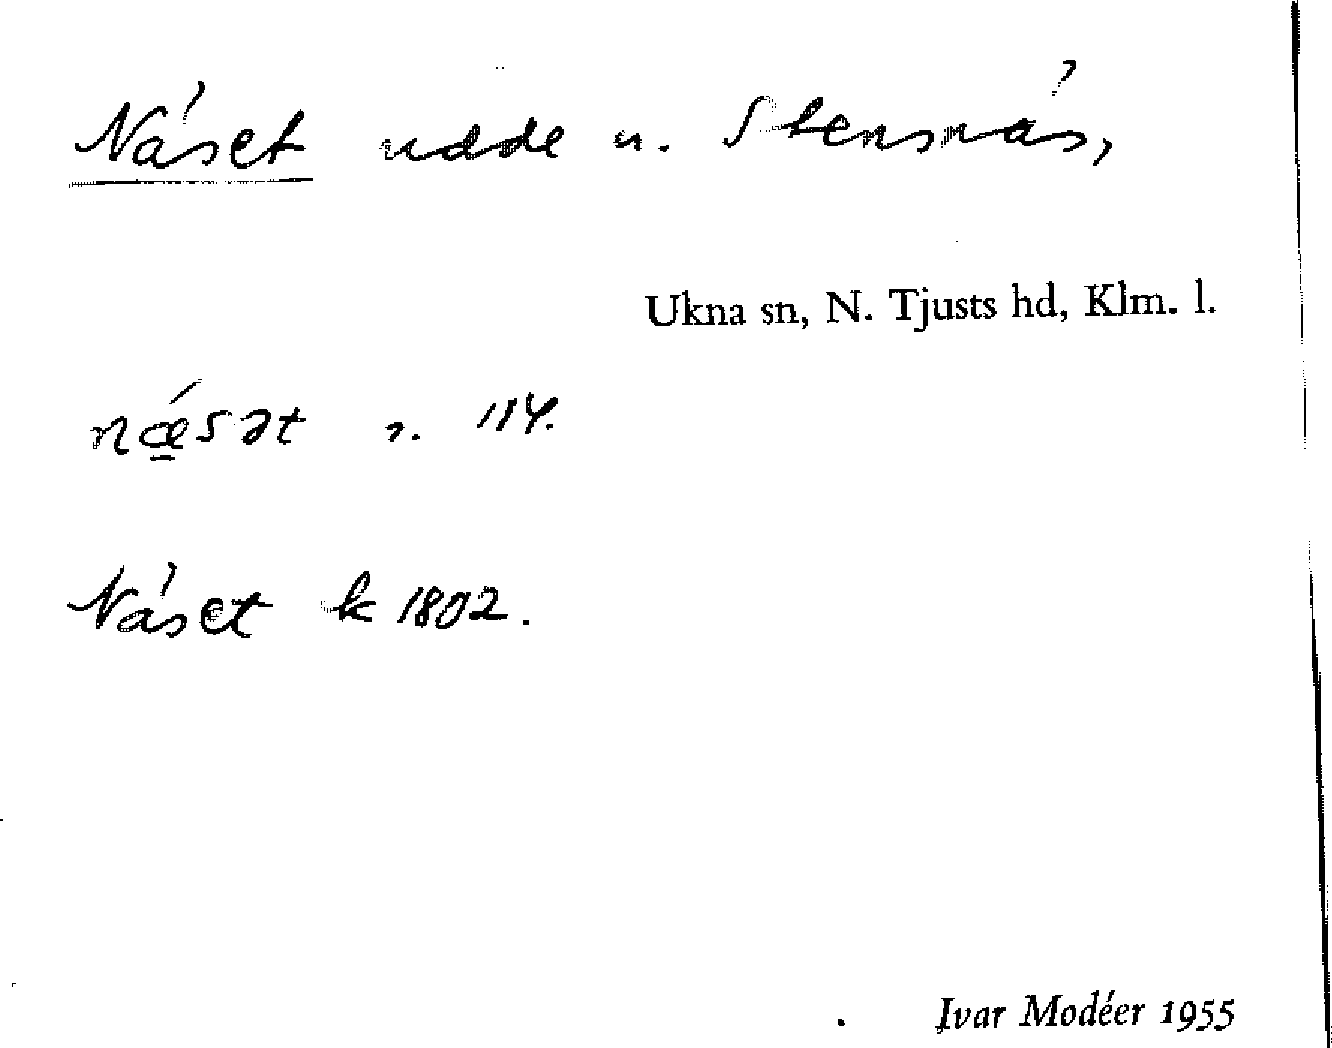 Näset udde u. Stensnäs,
Ukna sn, N. Tjusts hd, Klm. l.
nǽ̱sət s. 114.
Näset k 1802.
Ivar Modéer 1955